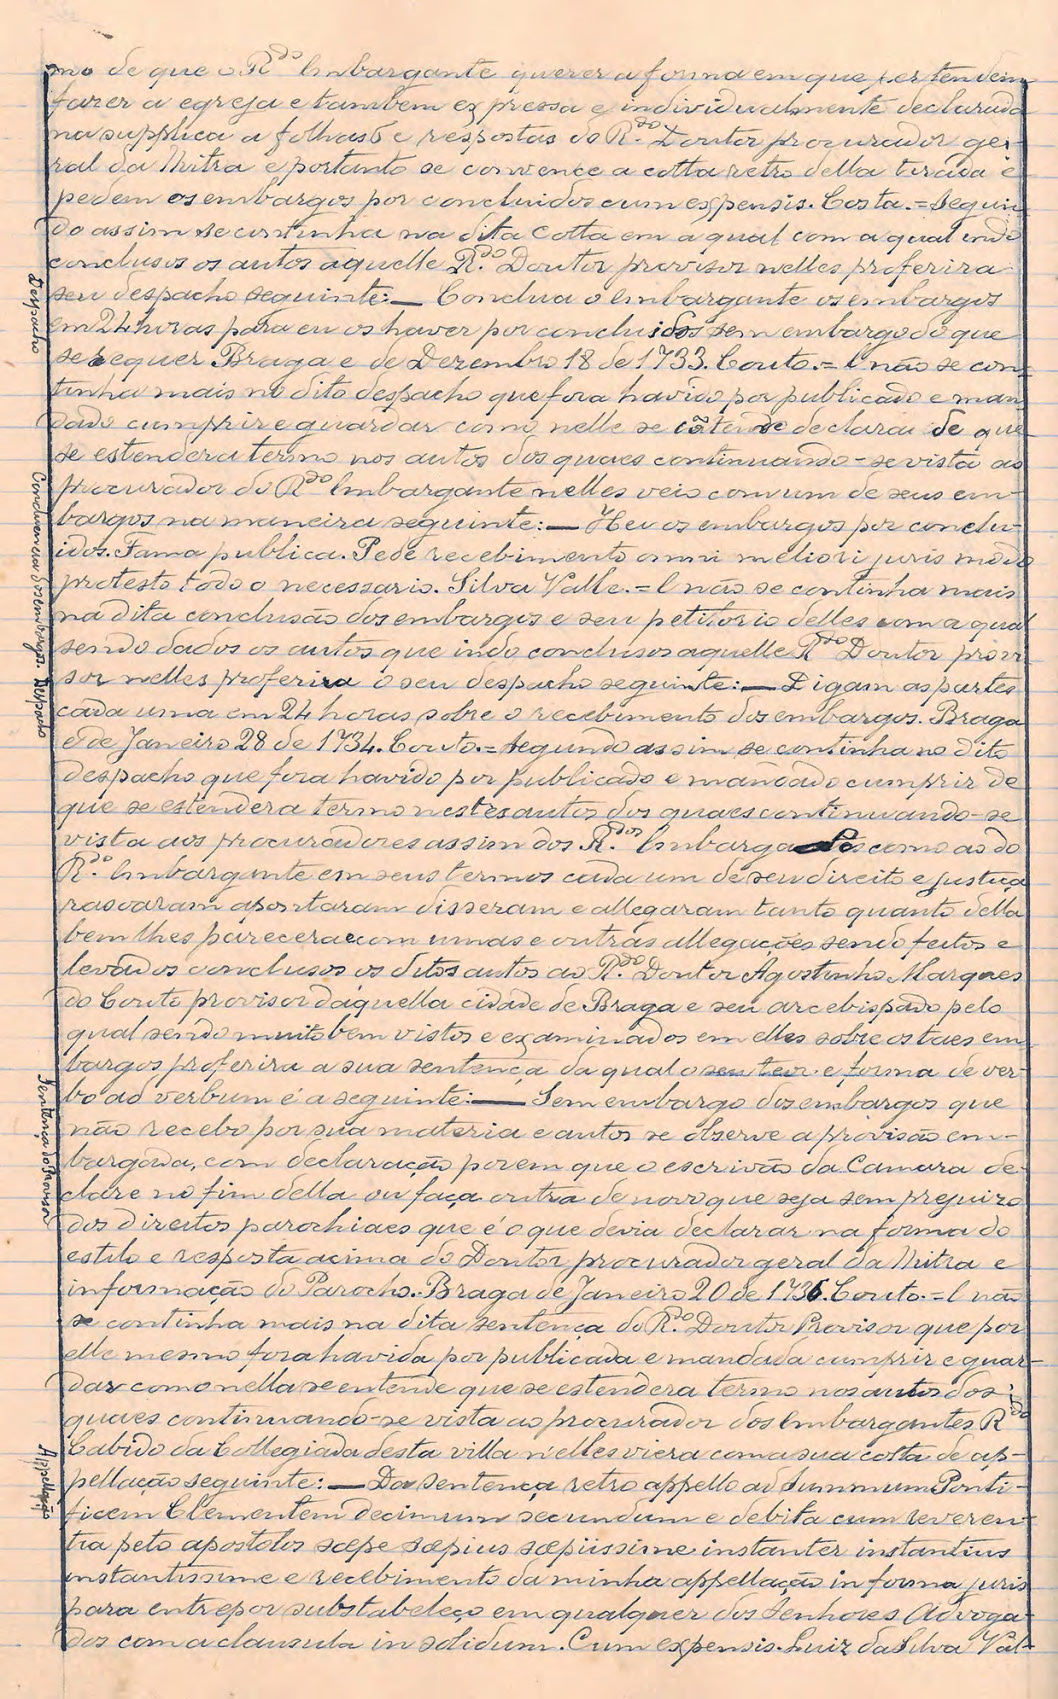 mo de que o R.do Embargante querer a forma em que pertendem
fazer a egreja e tambem expressa e individualmente declarada
na supplica a folhas 6 e respostas do R.do Doutor procurador ge-
ral da Mitra e portanto se convence a cotta retro della tirada e
pedem os embargos por concluidos cum expensis. Costa. = Segun-
do assim se continha na dita cotta em a qual com a qual indo
conclusos os autos aquelle R.do Doutor provisor nelles proferira
Despacho
seu despacho seguinte: — Conclua o embargante os embargos
em 24 horas para eu os haver por concluidos sem embargo do que
se requer Braga e de Dezembro 18 de 1733. Couto. = E não se con-
tinha mais no dito despacho que fora havido por publicado e man-
dado cumprir e guardar como nelle se cõtem se declara de que
se estendera termo nos autos dos quaes continuando-se vista ao
Conclusão dos embargos. Despacho
procurador do R.do Embargante nelles veio com um de seus em-
bargos na maneira seguinte: — Hei os embargos por conclu-
idos. Fama publica. Pede recebimento omni meliori juris modo
protesto todo o necessario. Silva Valle. = E não se continha mais
na dita conclusão dos embargos e seu petitorio delles com a qual
sendo dados os autos que indo conclusos aquelle R.do Doutor provi
sor nelles proferira o seu despacho seguinte: — Digam as partes
cada uma em 24 horas sobre o recebimento dos embargos. Braga
e de Janeiro 28 de 1734. Couto. = Segundo assim se continha no dito
despacho que fora havido por publicado e mandado cumprir de
que se estendera termo nestes autos dos quaes continuando-se
vista aos procuradores assim dos R.dos Embargados como ao do
R.do Embargante em seus termos cada um de seu direito e justiça
rasoaram apontaram disseram e allegaram tanto quanto della
bem lhes parecera e com umas e outras allegações sendo feitos e
levados conclusos os ditos autos ao R.do Doutor Agostinho Marques
do Couto provisor daquella cidade de Braga e seu arcebispado pelo
qual sendo muito bem vistos e examinados em elles sobre os taes em
bargos proferira a sua sentença da qual o seu teor e forma de ver-
Sentença do Provisor
bo ad verbum é a seguinte: — Sem embargo dos embargos que
não recebo por sua materia e autos se observe a provisão em-
bargada, com declaração porem que o escrivão da Camara de-
clare no fim della ou faça outra de novo que seja sem prejuizo
dos direitos parochiaes que é o que devia declarar na forma do
estilo e resposta acima do Doutor procurador geral da Mitra e
informação do Parocho. Braga de Janeiro 20 de 1736. Couto. = E não
se continha mais na dita sentença do R.do Doutor Provisor que por
elle mesmo fora havida por publicada e mandada cumprir e guar-
dar como nella se entende que se estendera termo nos autos dos
quaes continuando-se vista ao procurador dos Embargantes R.do
Cabido da Collegiada desta villa n'elles viera com a sua cotta de ap-
Appellação
pellação seguinte: — Da sentença retro appello ad Summum Ponti-
ficem Clementem decimum secundum e debita cum reveren-
tia peto apostolos sæpe sæpius sæpiissime instanter instantius
instantissime e recebimento da minha appellação in forma juris
para entrepor substabeleço em qualquer dos Senhores Advoga-
dos com a clausula in solidum. Cum expensis. Luiz da Silva Val-